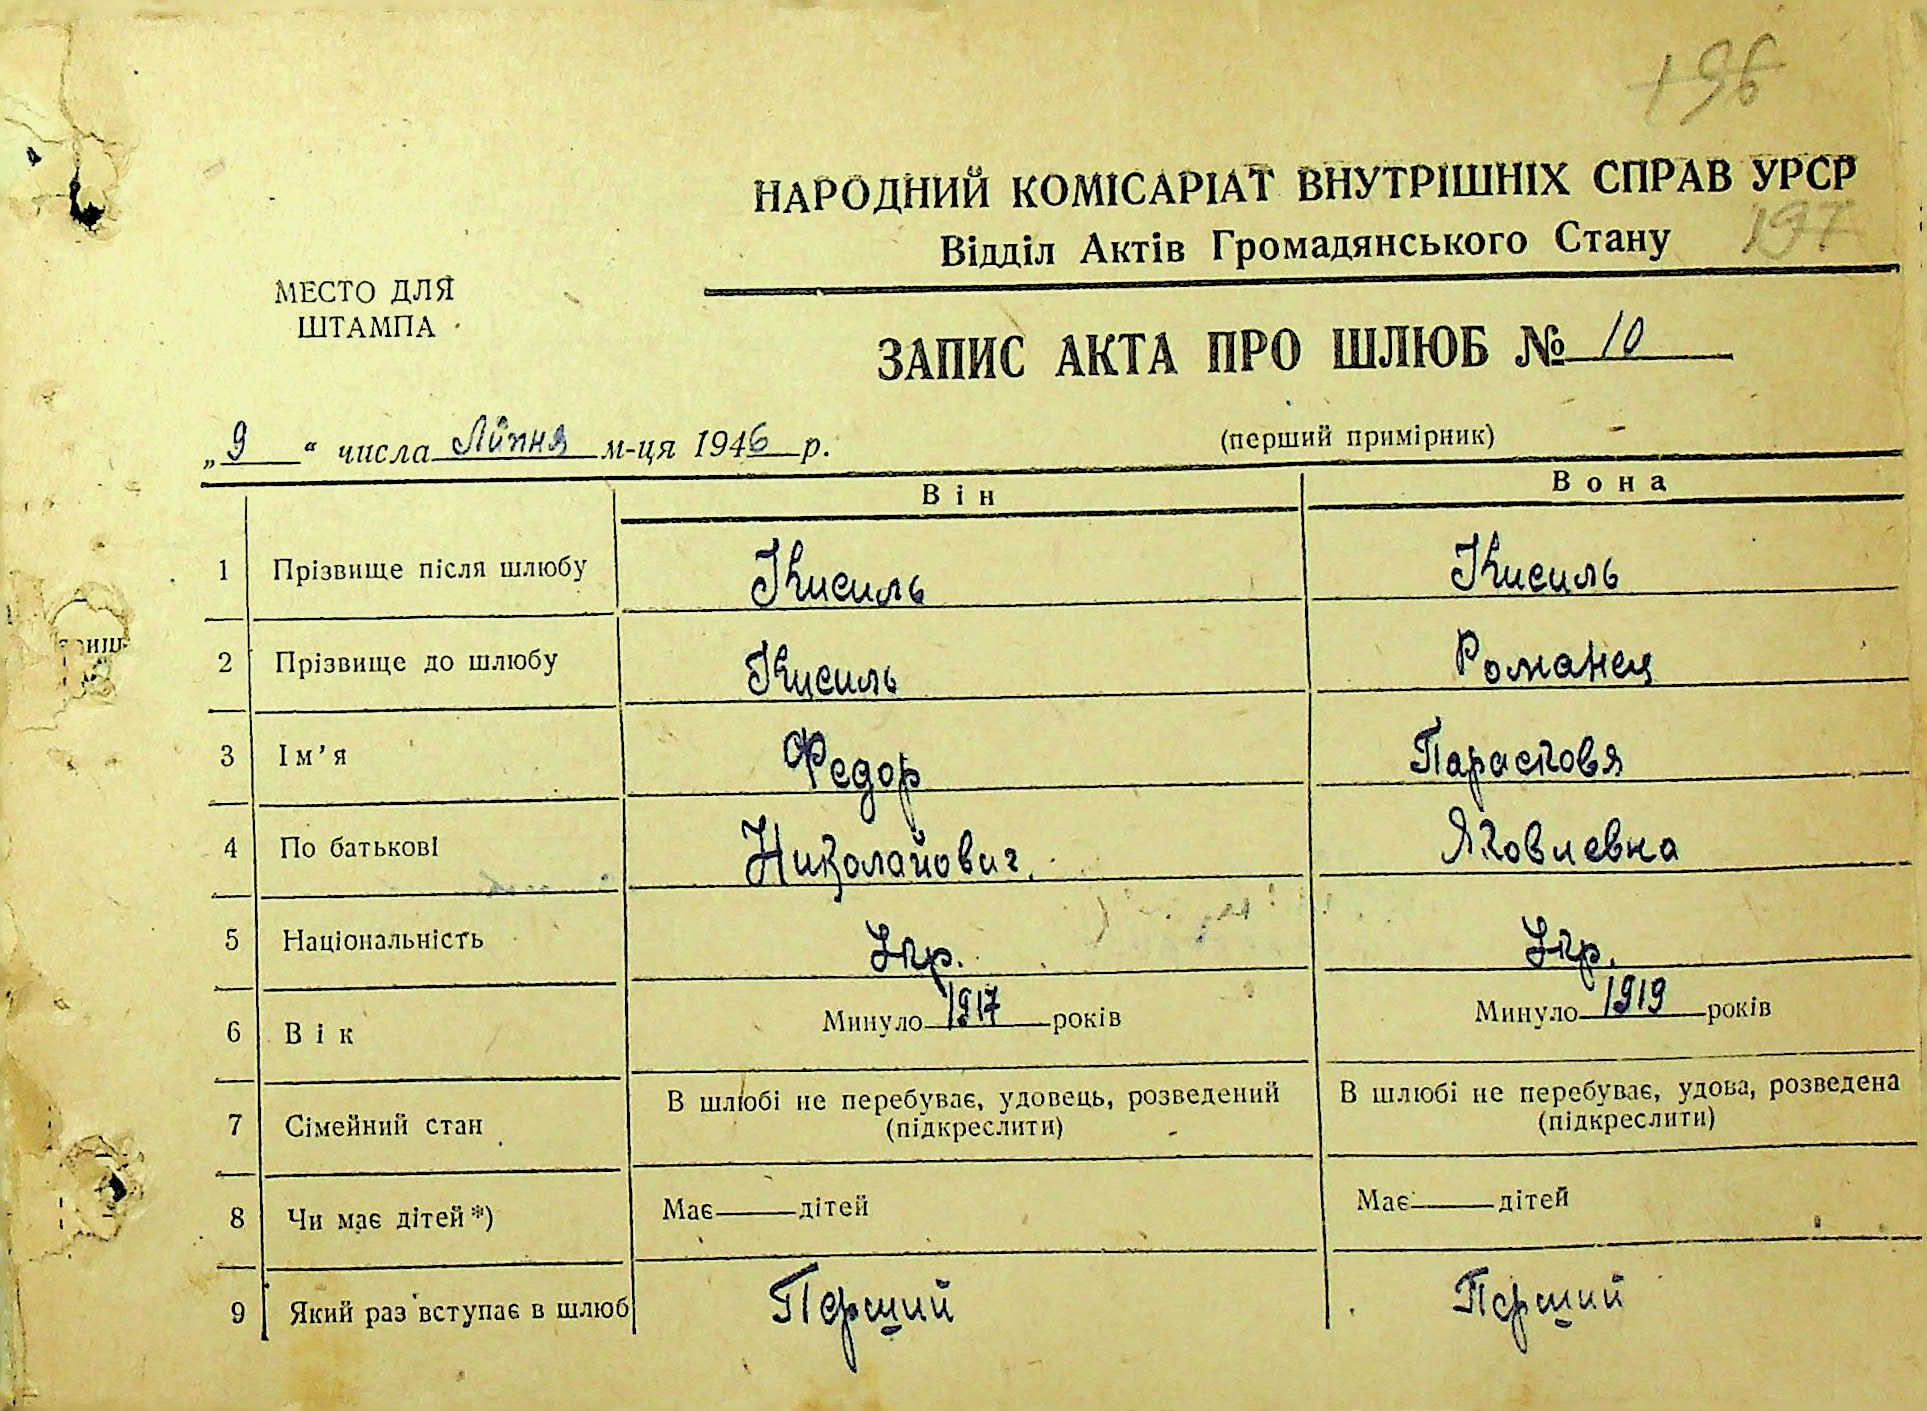 196
НАРОДНИЙ КОМІСАРІАТ ВНУТРІШНІХ СПРАВ УРСР
197
Відділ Актів Громадянського Стану
МЕСТО ДЛЯ
ШТАМПА
ЗАПИС АКТА ПРО ШЛЮБ № 10
„9“ числа Липня м-ця 1946 р.
(перший примірник)
Він Вона
1 Прізвище після шлюбу Кисиль Кисиль
2 Прізвище до шлюбу Кисиль Романец
3 Ім'я Федор Парасковя
4 По батькові Николайович. Яковлевна
5 Національність Укр. Укр.
6 Вік Минуло 1917 років Минуло 1919 років
7 Сімейний стан В шлюбі не перебуває, удовець, розведений (підкреслити) В шлюбі не перебуває, удова, розведена (підкреслити)
8 Чи має дітей *) Має — дітей Має — дітей
9 Який раз вступає в шлюб Перший Перший